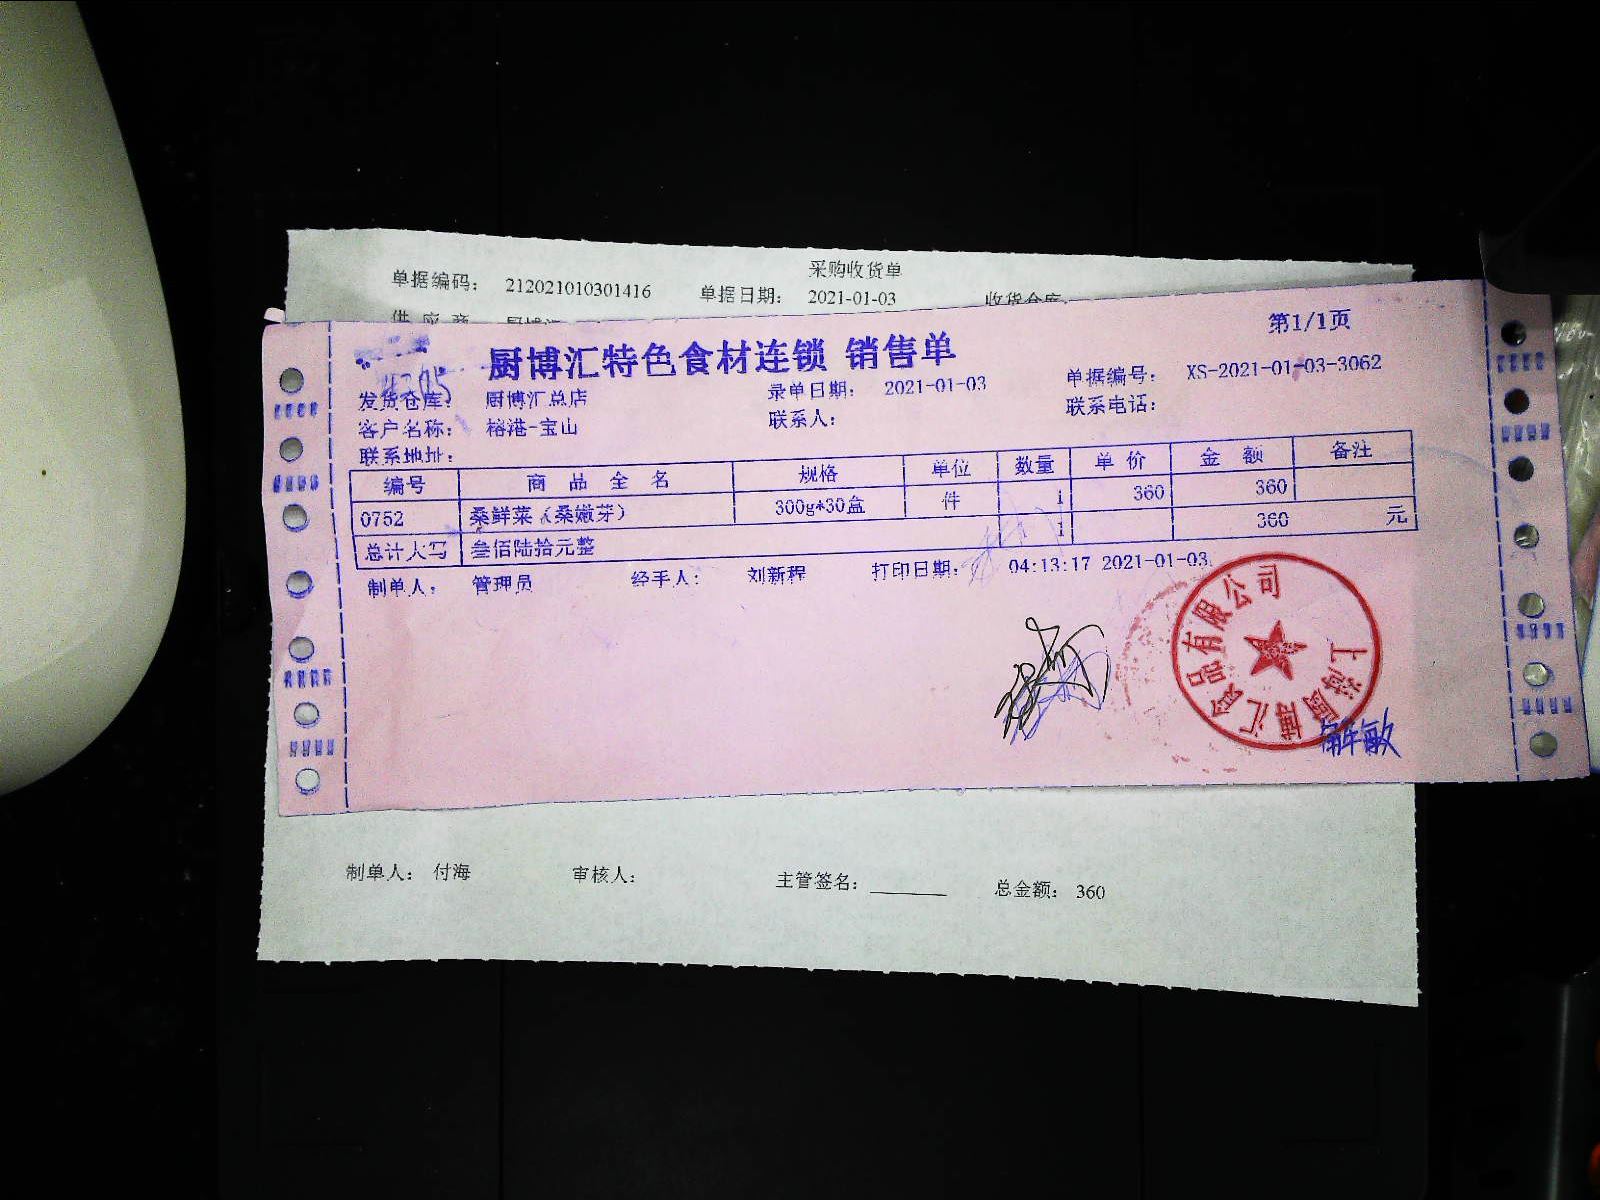 采购收货单
单据编码： 212021010301416 单据日期： 2021-01-03 收货仓库：
供 应 商 厨博汇
第1/1页
厨博汇特色食材连锁 销售单
发货仓库： 厨博汇总店 录单日期： 2021-01-03 单据编号： XS-2021-01-03-3062
客户名称： 榕港-宝山 联系人： 联系电话：
联系地址：
编号 商 品 全 名 规格 单位 数量 单 价 金 额 备注
0752 桑鲜菜（桑嫩芽） 300g*30盒 件 1 360 360
总计大写 叁佰陆拾元整 1 360 元
制单人： 管理员 经手人： 刘新程 打印日期： 04:13:17 2021-01-03
上海厨博汇食品有限公司
解敏
制单人： 付海 审核人： 主管签名： 总金额： 360